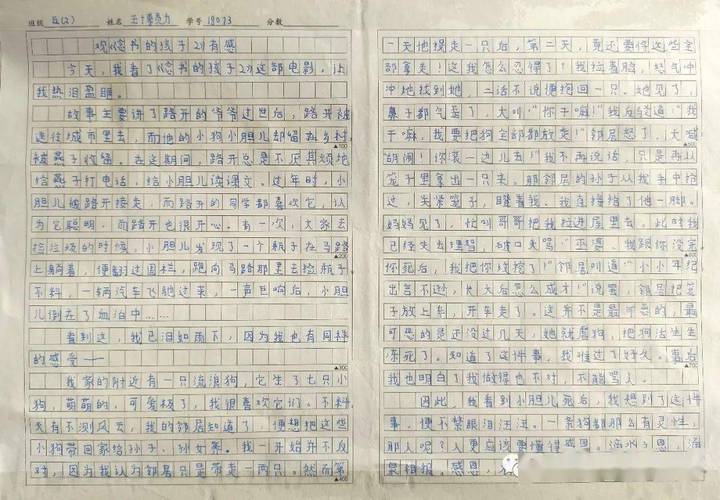 班级 五(2) 姓名 学号 18073 分数
观《念书的孩子2》有感
今天，我看了《念书的孩子2》这部电影，让
我热泪盈眶。
故事主要讲了路开的爷爷过世后，路开被
送往城市里去，而他的小狗小胆儿却留在乡村
被燕子收留。在这期间，路开总是不厌其烦地
给燕子打电话，给小胆儿读课文。过年时，小
胆儿被路开接走，而路开的同学都喜欢它，认
为它聪明，而路开也很开心。有一次，大家去
捡垃圾的时候，小胆儿发现了一个瓶子在马路
上躺着，便翻过围栏，跑向马路那里去捡瓶子
不料，一辆汽车飞驰过来，一声巨响后，小胆
儿倒在了血泊中……
看到这，我已泪如雨下，因为我也有同样
的感受——
我家的附近有一只流浪狗，它生了七只小
狗，萌萌的，可爱极了，我很喜欢它们。不料
天有不测风云，我的邻居知道了，便想把这些
小狗带回家给孙子、孙女养。我一开始并不反
对，因为我认为邻居只是带走一两只。然而第
一天他提走一只后，第二天，竟还要你这些全
部拿走！这我怎么忍得了！我拉着脸，怒气冲
冲地找到她，二话不说便抱回一只。她见了，
鼻子都气歪了，大叫：“你干嘛！”我反驳道：“我
干嘛，我要把狗全部都放走！”邻居怒了，大喊
胡闹！你滚一边儿去！”我不再说话，只是再从
笼子里拿出一只来，那邻居的孙子从我手中抢
过，夹紧笼子，瞪着我。我直接踹了他一脚。
妈妈见了，忙叫哥哥把我拉进屋里去。此时我
已经失去理智，破口大骂：“巫婆，我跟你没完
你死后，我把你坟挖了！”邻居叫道：“小小年纪
出言不逊，长大后怎么成才！”说罢，邻居把笼
子放上车，开车走了。这并不是最可恶的，最
可恶的是还没过几天，她就虐狗，把狗活生生
冻死了。知道了这件事，我难过了好久。事后
我也明白了我做得也不对，不能骂人。
因此，我看到小胆儿死后，我想到了这件
事，便不禁眼泪汪汪。一条狗都那么有灵性，
那人呢？人更应该要懂得感恩。滴水之恩，涌
泉相报。感恩，